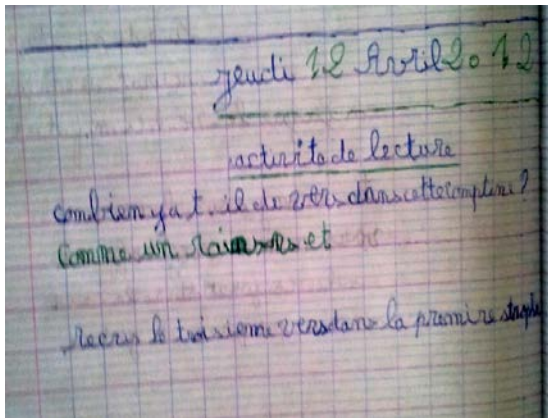 jeudi 12 Avril 2012
activite de lecture
combien ya t. il de vers dans cette comptine?
Comme un et
recris le troisieme vers dans la premire strophe